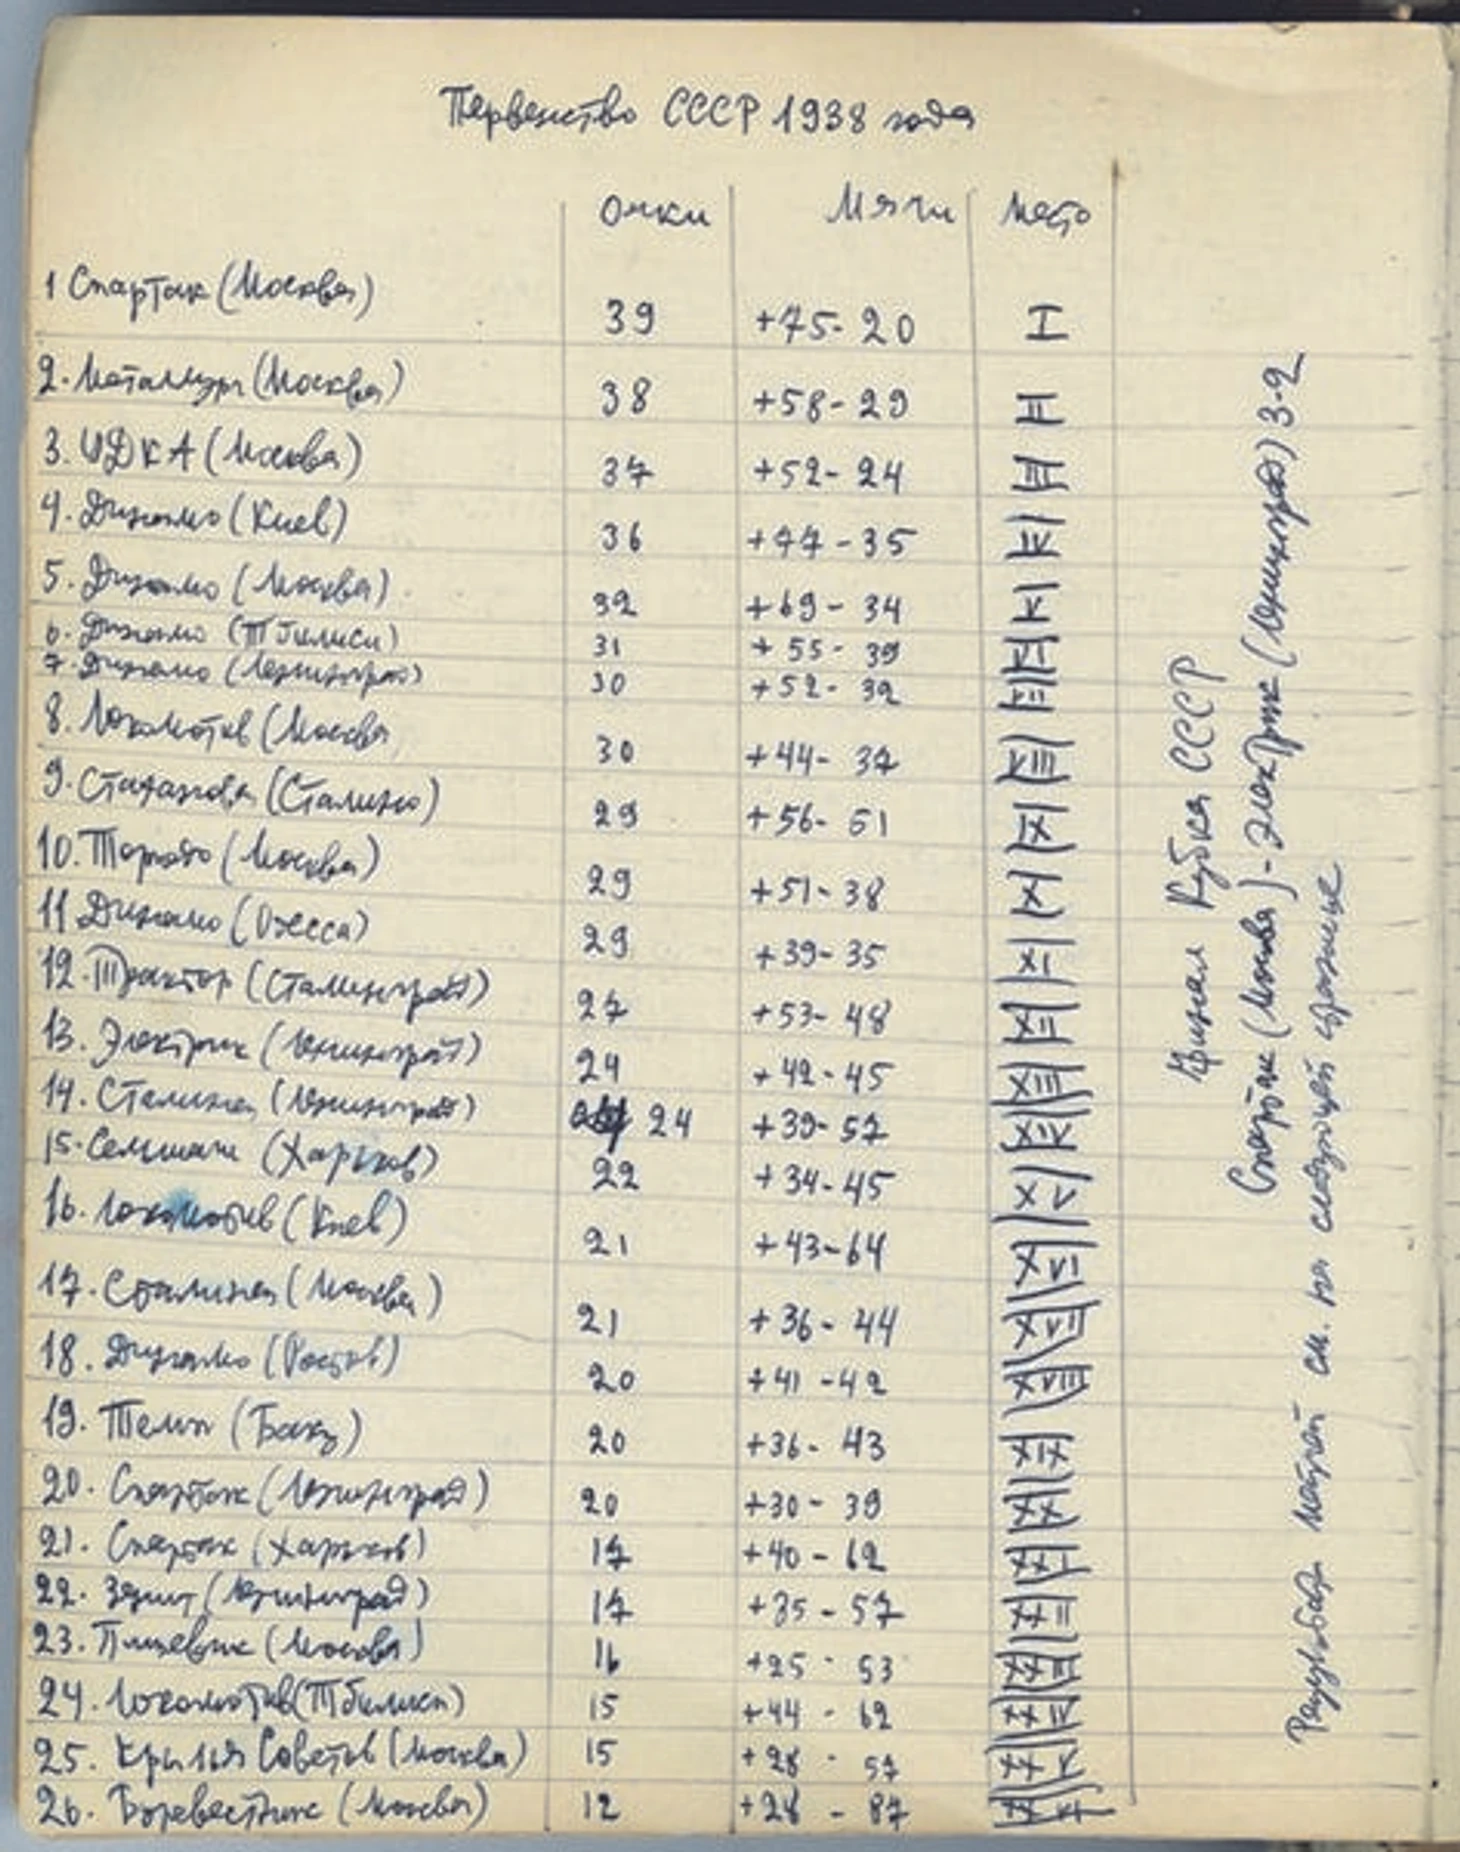 Первенство СССР 1938 года
Очки Мячи Место
1 Спартак (Москва) 39 +75-20 I
2. Металлург (Москва) 38 +58-29 II
3. ЦДКА (Москва) 37 +52-24 III
4. Динамо (Киев) 36 +77-35 IV
5. Динамо (Москва) 32 +69-34 V
6. Динамо (Тбилиси) 31 +55-39 VI
7. Динамо (Ленинград) 30 +52-32 VII
8. Локомотив (Москва 30 +44-37 VIII
9. Стаханове (Сталино) 29 +56-51 IX
10. Торпедо (Москва) 29 +51-38 X
11 Динамо (Одесса) 29 +39-35 XI
12. Трактор (Сталинград) 27 +53-48 XII
13. Электрик (Ленинград) 24 +42-45 XIII
14. Сталинец (Ленинград) 24 +39-57 XIV
15. Сельмаш (Харьков) 22 +34-45 XV
16. Локомотив (Киев) 21 +43-64 XVI
17. Сталинец (Москва) 21 +36-44 XVII
18. Динамо (Ростов) 20 +41-42 XVIII
19. Темп (Баку) 20 +36-43 XIX
20. Спартак (Ленинград) 20 +30-39 XX
21. Спартак (Харьков) 17 +40-62 XXI
22. Зенит (Ленинград) 17 +35-57 XXII
23. Пищевик (Москва) 16 +25-53 XXIII
24. Локомотив (Тбилиси) 15 +44-62 XXIV
25. Крылья Советов (Москва) 15 +28-57 XXV
26. Буревестник (Москва) 12 +28-87 XXVI
Финал Кубка СССР
Спартак (Москва) - Электрик (Ленинград) 3-2
Результат матчей см. на следующей странице